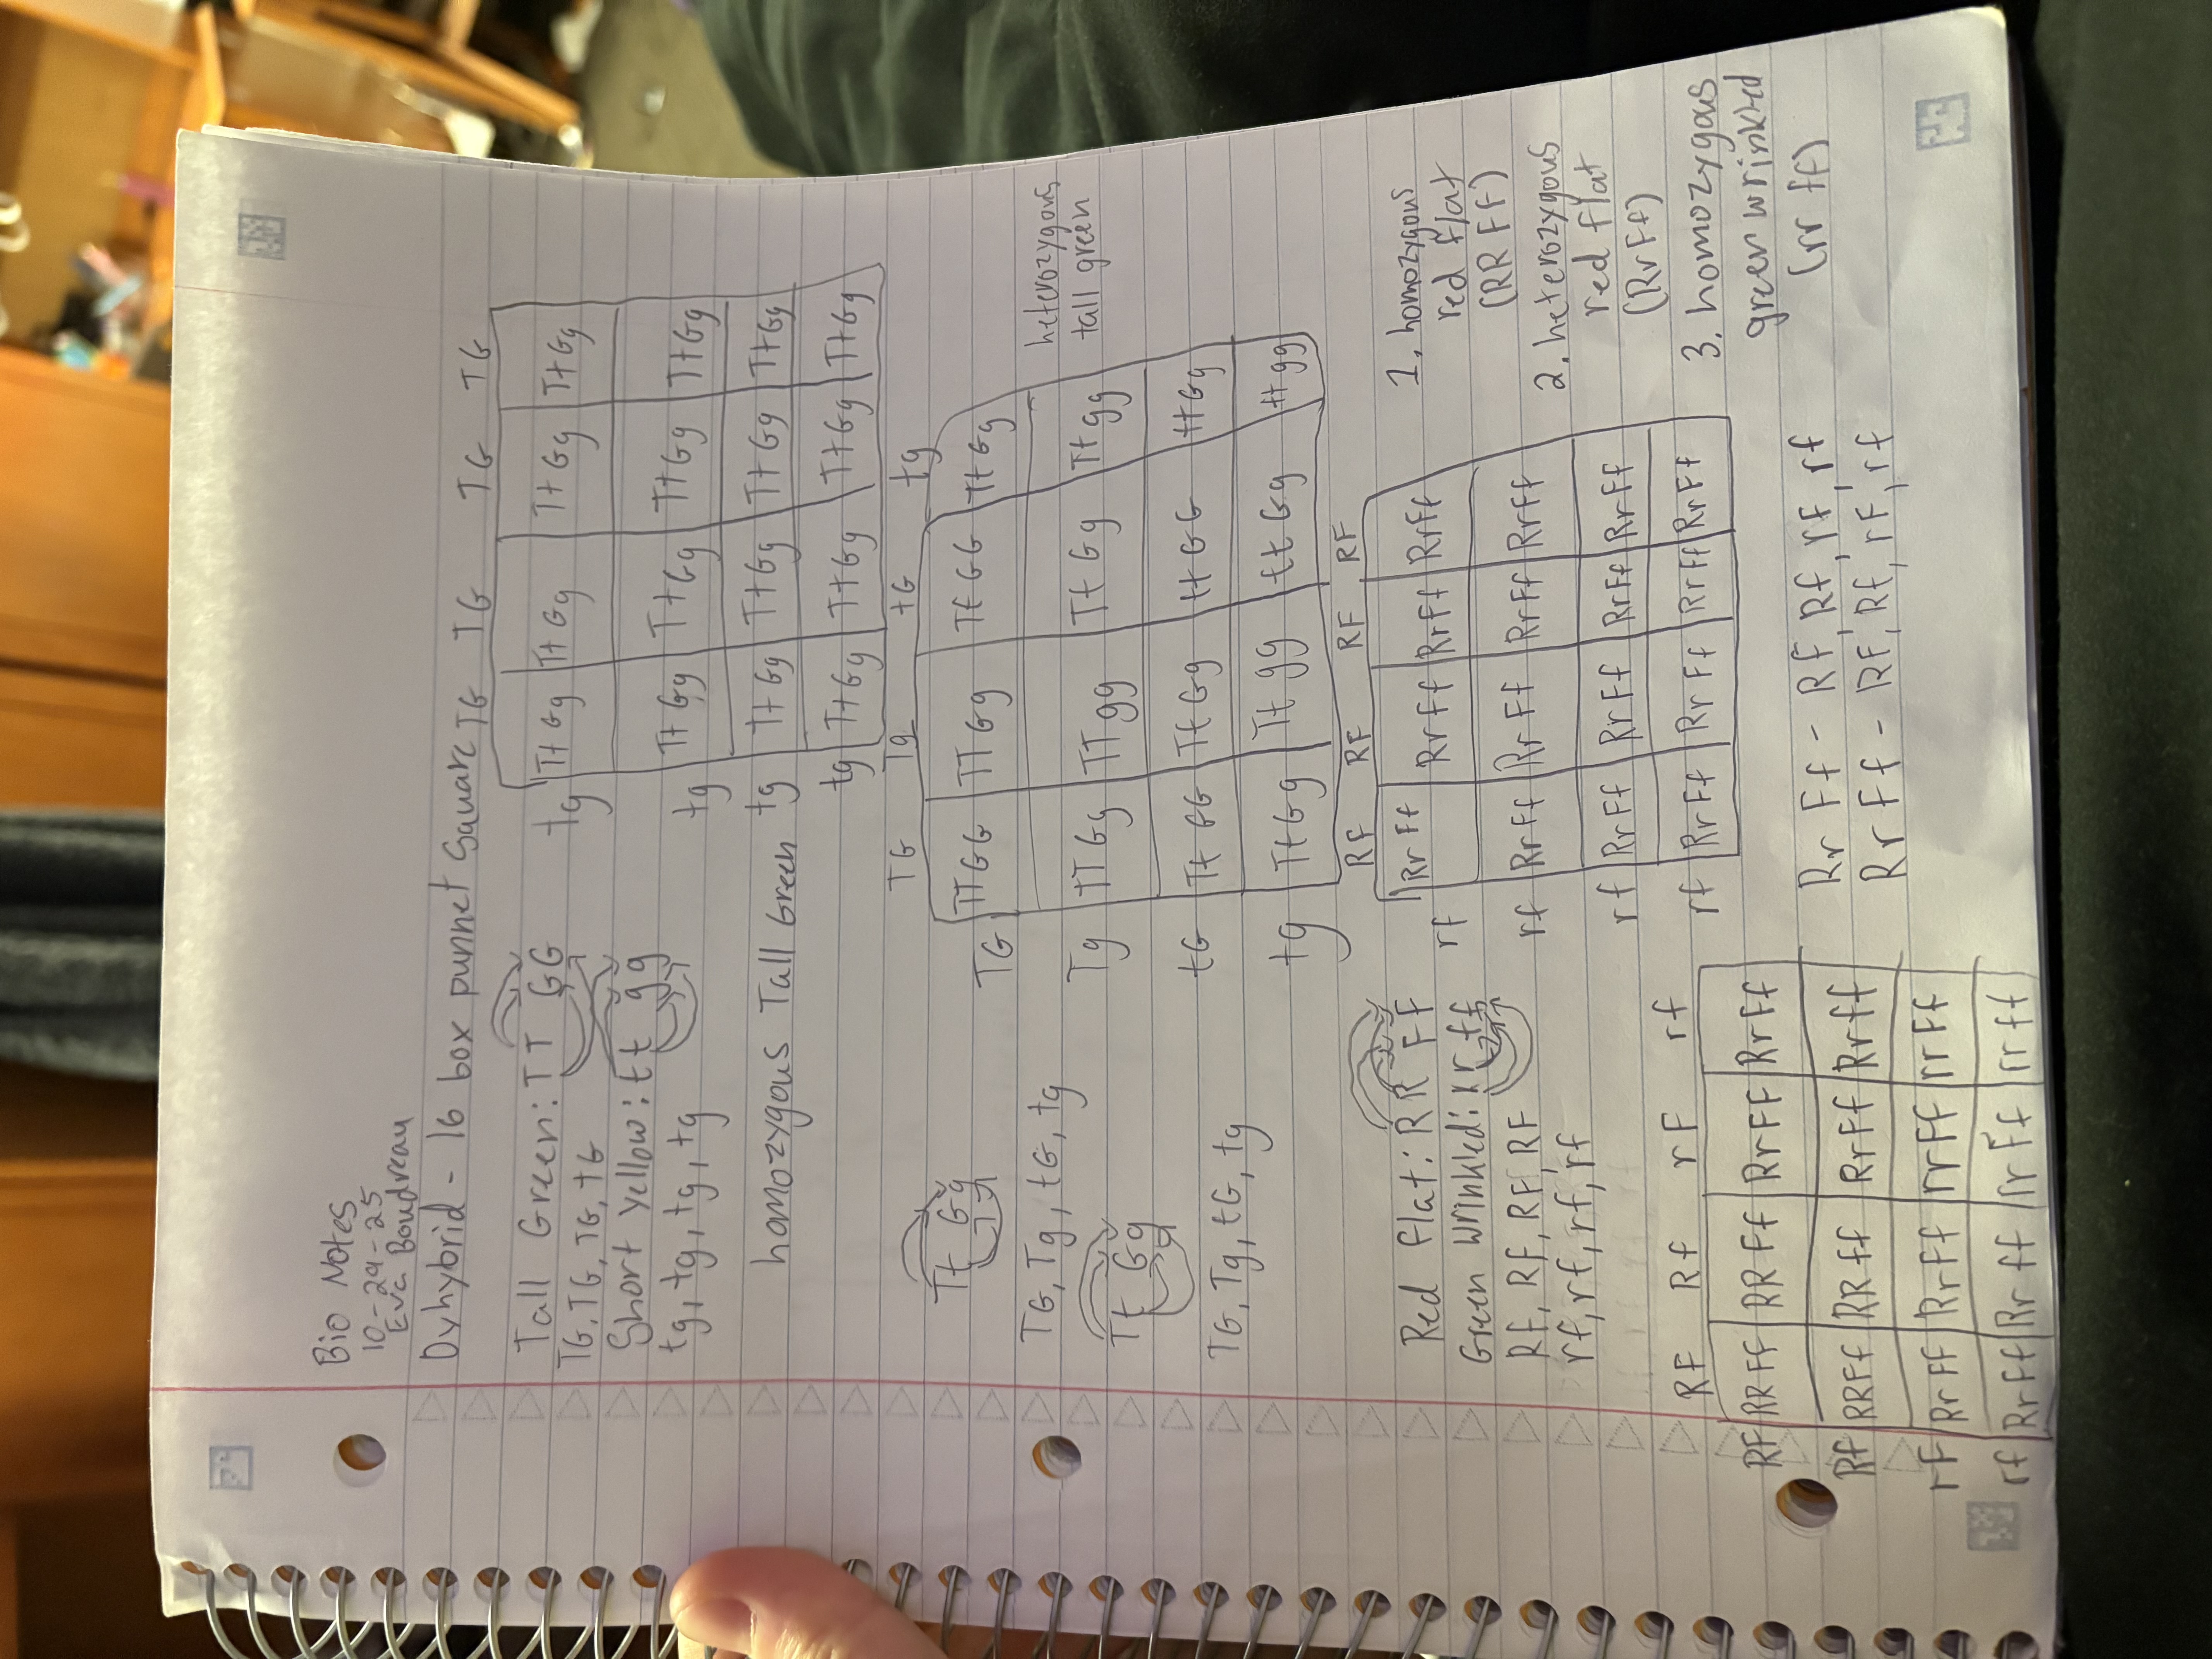 Bio Notes
10-29-25
Eva Boudreau
Dyhybrid - 16 box punnet Square
Tall Green: TT GG
TG, TG, TG, tG
Short yellow: tt gg
tg, tg, tg, tg
homozygous Tall Green
TG TG TG TG
tg TtGg TtGg TtGg TtGg
tg TtGg TtGg TtGg TtGg
tg TtGg TtGg TtGg TtGg
tg TtGg TtGg TtGg TtGg
Tt Gg
TG, Tg, tG, tg
Tt Gg
TG, Tg, tG, tg
TG Tg tG tg
TG TTGG TTGg TtGG TtGg
Tg TTGg TTgg TtGg Ttgg
tG TtGG TtGg ttGG ttGg
tg TtGg Ttgg ttGg ttgg
heterozygous
tall green
Red flat: RR FF
Green wrinkled: rr ff
RF, RF, RF, RF
rf, rf, rf, rf
RF RF RF RF
rf RrFf RrFf RrFf RrFf
rf RrFf RrFf RrFf RrFf
rf RrFf RrFf RrFf RrFf
rf RrFf RrFf RrFf RrFf
1. homozygous
red flat
(RR FF)
2. heterozygous
red flat
(RrFf)
3. homozygous
green wrinkled
(rr ff)
RF Rf rF rf
RF RRFF RRFf RrFF RrFf
Rf RRFf RRff RrFf Rrff
rF RrFF RrFf rrFF rrFf
rf RrFf Rrff rrFf rrff
Rr Ff - RF, Rf, rF, rf
Rr Ff - RF, Rf, rF, rf